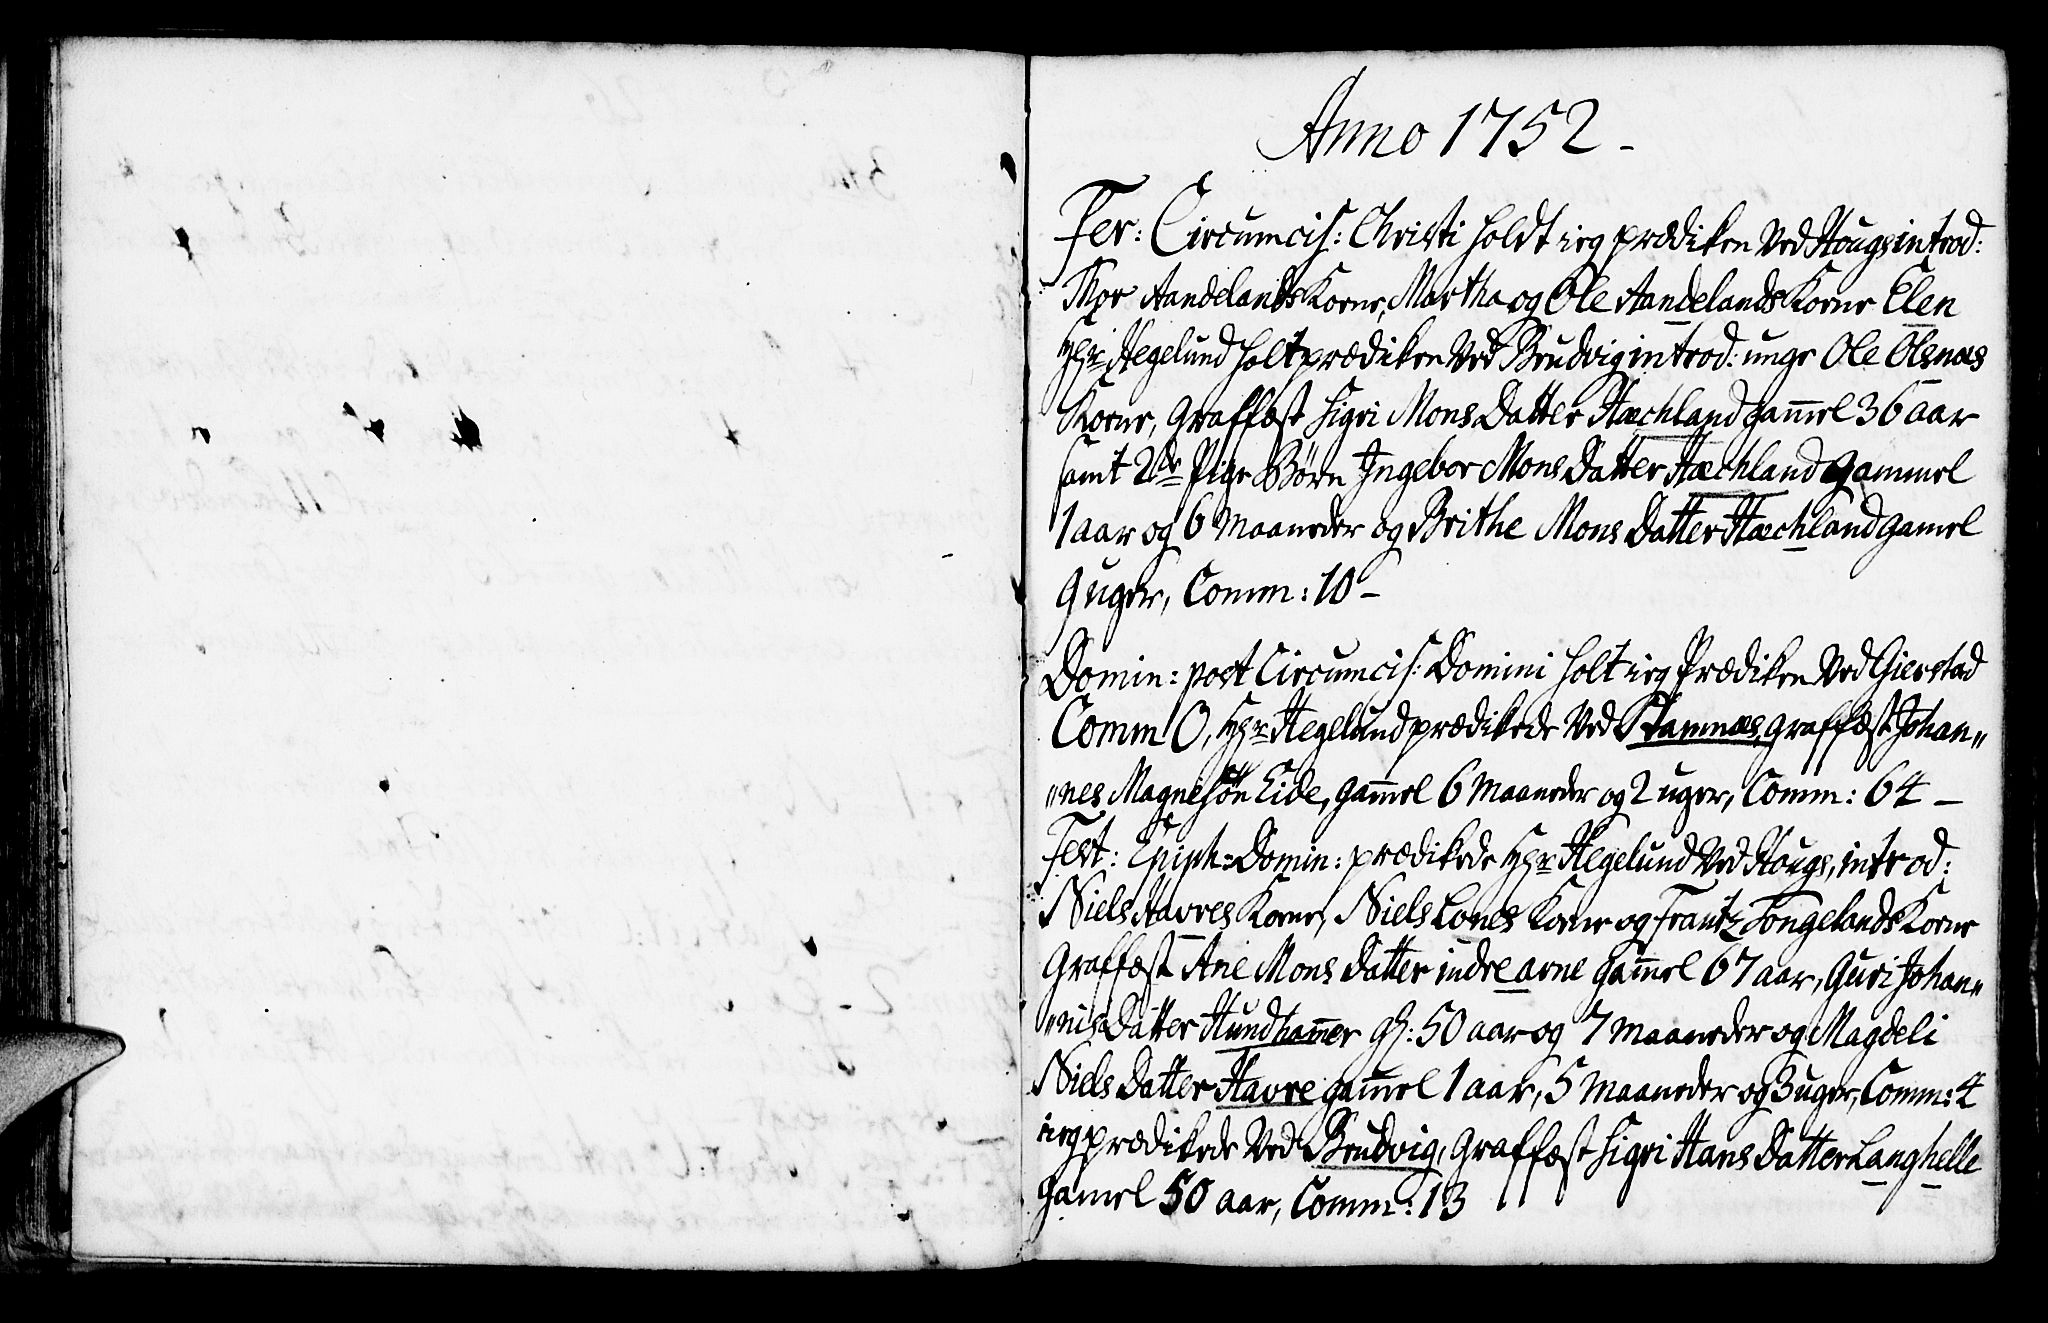 Anno 1752 –
Fer: Circumcis: Christi holdt ieg prædiken Ved Hougs introd:
Thor Aandelands Kone, Martha og Ole Aandelands Kone Elen
Hr Hegelund holt prædiken Ved Brudvig introd: unge Ole Olsnæs
Kone, Graffæst Sigri Mons Datter Hæchland gam̄el 36 aar
samt 2de Pige Børn Ingebor Mons Datter Hæchland gammel
1 aar og 6 Maaneder og Brithe Mons Datter Hæchland gamel
9 uger, Comm: 10 –
Domin: post Circumcis: Domini holt ieg Prædiken Ved Gierstad
Comm 0, Hr Hegelund prædikede Ved Stamnæs, graffæst Johan„
„nes Magnesøn Eide, gam̄el 6 Maaneder og 2 uger, Comm: 64 –
Fest: Epiph: Domin: prædikede Hr Hegelund Ved Hougs, introd:
Niels Havres Kone, Niels Lones Kone og Frantz Tongelands Kone
Graffæst Ane Mons Datter indre arne gam̄el 67 aar, Guri Johan„
„nis Datter Hundham̄er gl: 50 aar og 7 Maaneder og Magdeli
Niels Datter Havre gam̄el 1 aar, 5 Maaneder og 3 uger, Comm: 4
ieg prædikede Ved Brudvig, Graffæst Sigri Hans Datter Langhelle
Gamel 50 aar, Comm: 13